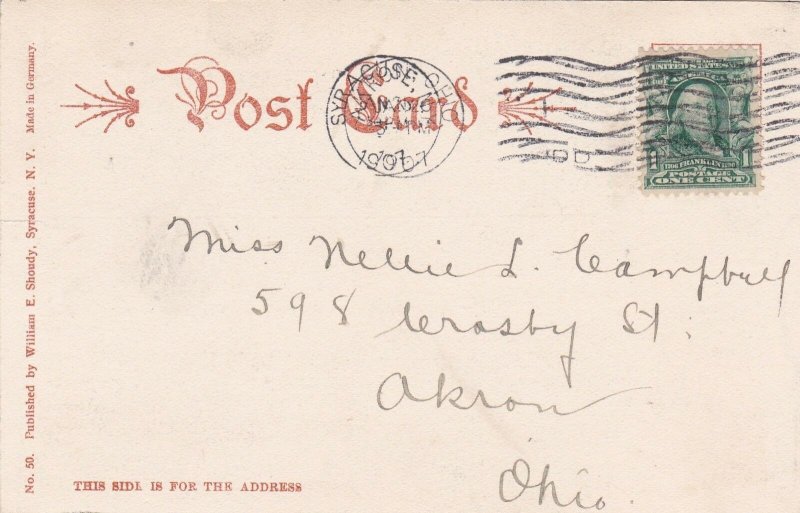 Post Card
SYRACUSE
1907
UNITED STATES
OF AMERICA
FRANKLIN
POSTAGE
1 ONE CENT 1
Miss Nellie L. Campbell
598 Crosby St.
Akron
Ohio.
THIS SIDE IS FOR THE ADDRESS
No. 50. Published by William E. Shoudy, Syracuse. N. Y. Made in Germany.